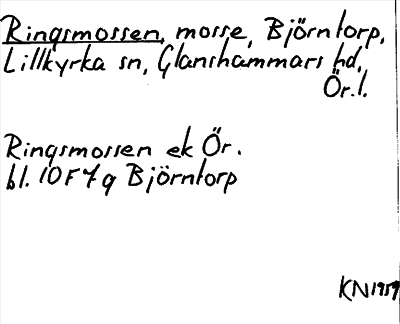 Ringsmossen, mosse, Björntorp,
Lillkyrka sn, Glanshammars hd,
Ör.l.
Ringsmossen ek Ör.
bl. 10F 7g Björntorp
KN1959